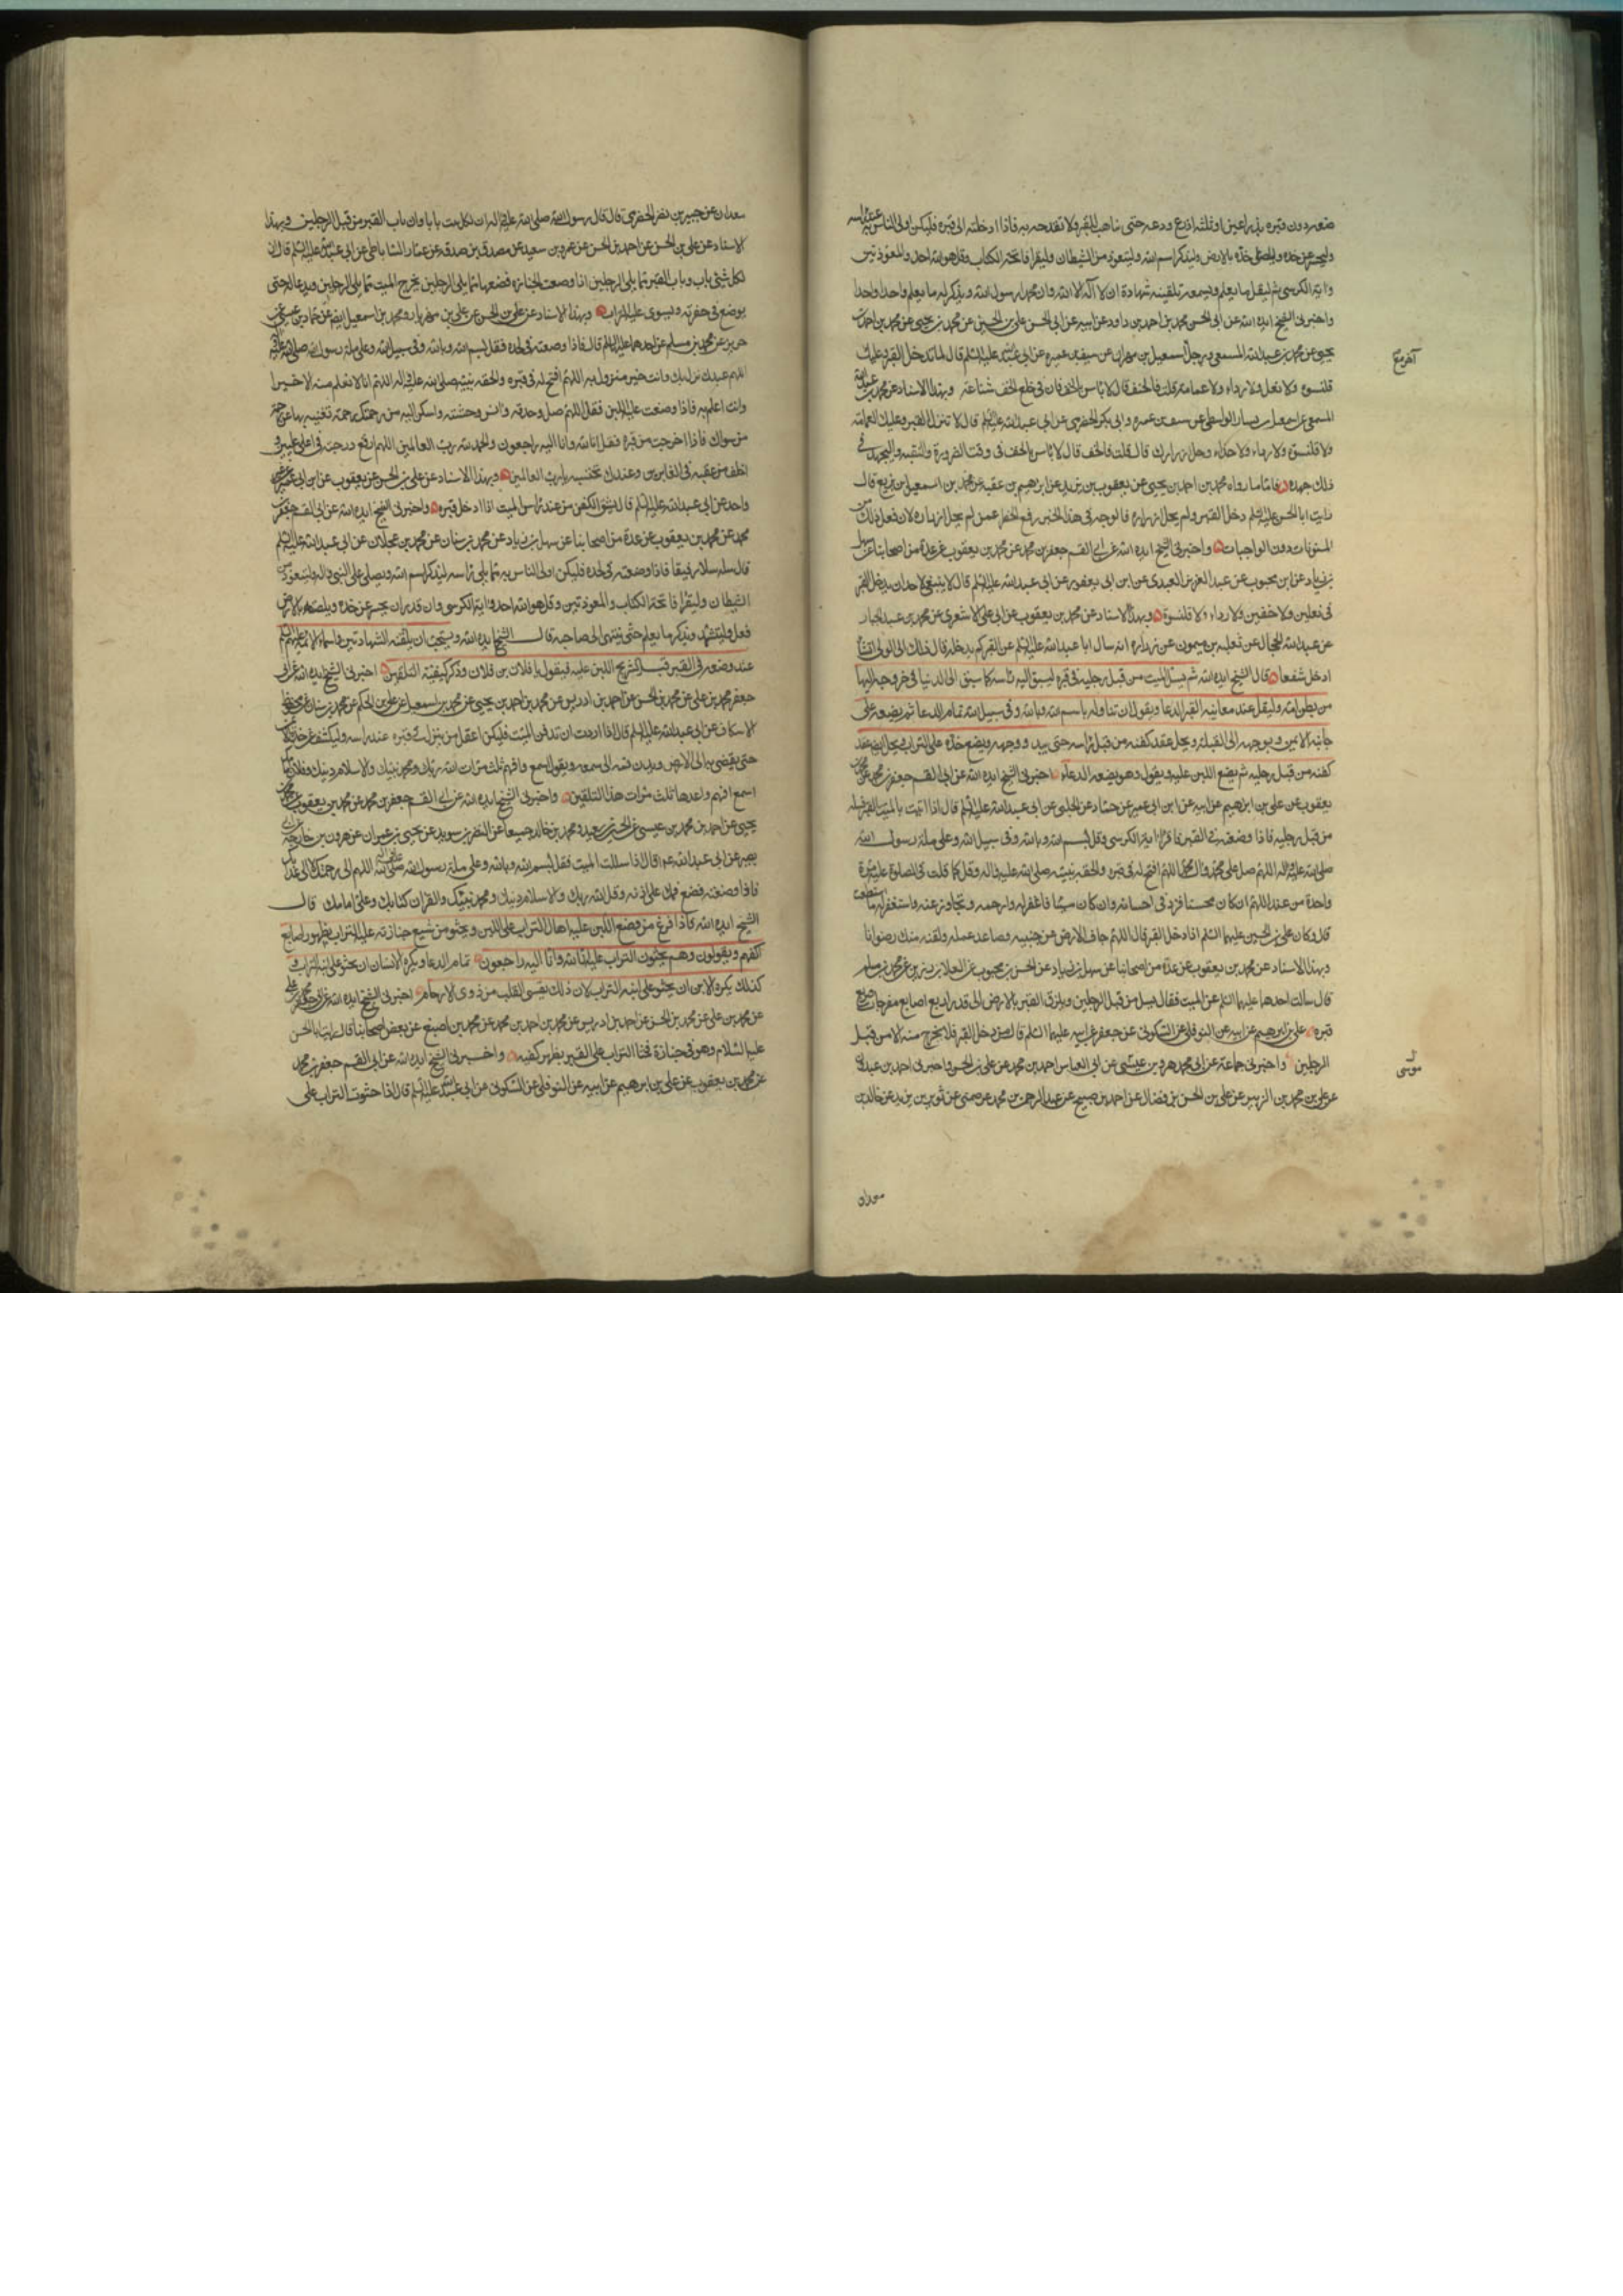 ضعه دون قبره بذراعين او ثلثة اذرع ودعه حتى يتاهب للقبر ولا تفدحه به فاذا ادخلته الى قبره فليكن اولى الناس به عند راسه
وليحسر عن خده ويلصق خده بالارض وليذكر اسم الله وليتعوذ من الشيطان وليقرا فاتحة الكتاب وقل هو الله احد والمعوذتين
واية الكرسي ثم ليقل ما يعلم ويسمعه تلقينه شهادة ان لا اله الا الله وان محمدا رسول الله ويذكر له ما يعلم واحدا واحدا
واخبرني الشيخ ايده الله عن ابي الحسن محمد بن احمد بن داود عن ابيه عن ابي الحسن علي بن الحسين عن محمد بن يحيى عن محمد بن احمد بن
يحيى عن محمد بن عبد الله المسمعي ورجل اسمعيل بن مهران عن سيف بن عميره عن ابي عبد الله عليه السلم قال لا تدخل القبر وعليك
قلنسوه ولا نعل ولا رداء ولا عمامة قلت فالخف قال لا باس بالخف فان في خلع الخف شناعة وبهذا الاسناد عن محمد بن عبد الله
المسمعي عن اسمعيل بن يسار الواسطي عن سيف بن عميره وابي بكر الحضرمي عن ابي عبد الله عليه السلم قال لا تنزل القبر وعليك العمامة
ولا قلنسوة ولا رداء ولا حذاء وحل ازرارك قال قلت فالخف قال لا باس بالخف في وقت الضرورة والتقية وليجهد في
ذلك جهده فاما ما رواه محمد بن احمد بن يحيى عن يعقوب بن يزيد عن ابرهيم بن عقبة عن محمد بن اسمعيل بن بزيع قال
رايت ابا الحسن عليه السلم دخل القبر ولم يحل ازراره فالوجه في هذا الخبر رفع الحظر عمن لم يحل ازراره لان فعل ذلك من
المسنونات دون الواجبات واخبرني الشيخ ايده الله عن ابي القسم جعفر بن محمد عن محمد بن يعقوب عن عدة من اصحابنا عن سهل
بن زياد عن ابن محبوب عن عبد العزيز العبدي عن ابن ابي يعفور عن ابي عبد الله عليه السلم قال لا ينبغي لاحد ان يدخل القبر
في نعلين ولا خفين ولا رداء ولا قلنسوة وبهذا الاسناد عن محمد بن يعقوب عن ابي علي الاشعري عن محمد بن عبد الجبار
عن عبد الله الحجال عن ثعلبه بن ميمون عن زراره انه سال ابا عبد الله عليه السلم عن القبر كم يدخله قال ذلك الى الولي ان شاء
ادخل شفعا قال الشيخ ايده الله ثم يسل الميت من قبل رجليه في قبره ليسبق اليه راسه كما سبق الى الدنيا في خروجه اليها
من بطن امه وليقل عند معاينة القبر الدعا ويقول ان تناوله باسم الله وبالله وفي سبيل الله تمام الدعا ثم يضعه على
جانبه الايمن ويوجهه الى القبلة ويحل عقد كفنه من قبل راسه حتى يبدو وجهه ويضع خده على التراب ويحل ايضا عقد
كفنه من قبل رجليه ثم يضع اللبن عليه ويقول وهو يضعه الدعاء اخبرني الشيخ ايده الله عن ابي القسم جعفر بن محمد عن محمد بن
يعقوب عن علي بن ابرهيم عن ابيه عن ابن ابي عمير عن حماد عن الحلبي عن ابي عبد الله عليه السلم قال اذا اتيت بالميت القبر فسله
من قبل رجليه فاذا وضعته في القبر فاقرا اية الكرسي وقل بسم الله وبالله وفي سبيل الله وعلى ملة رسول الله
صلى الله عليه واله اللهم صل على محمد وال محمد اللهم افتح له في قبره والحقه بنبيه صلى الله عليه واله وقل كما قلت في الصلوة عليه مرة
واحدة من عند اللهم ان كان محسنا فزد في احسانه وان كان مسيئا فاغفر له وارحمه وتجاوز عنه واستغفر له ما استطعت
قال وكان علي بن الحسين عليهما السلم اذا دخل القبر قال اللهم جاف الارض عن جنبيه وصاعد عمله ولقنه منك رضوانا
وبهذا الاسناد عن محمد بن يعقوب عن عدة من اصحابنا عن سهل بن زياد عن الحسن بن محبوب عن العلا بن رزين عن محمد بن مسلم
قال سالت احدهما عليهما السلم عن الميت فقال يسل من قبل الرجلين ويلزق القبر بالارض الى قدر اربع اصابع مفرجات ويربع
قبره علي بن ابرهيم عن ابيه عن النوفلي عن السكوني عن جعفر عن ابيه عليهما السلم قال من دخل القبر فلا يخرج منه الا من قبل
الرجلين واخبرني جماعة عن ابي محمد هرون بن عن ابي العباس احمد بن محمد عن علي بن الحسن واخبرني احمد بن عبدون
عن علي بن محمد بن الزبير عن علي بن الحسن بن فضال عن احمد بن صبيح عن عبد الرحمن بن محمد عن ثوير بن يزيد عن خالد بن
موسى
معدان
معدان عن جبير بن نفير الحضرمي قال قال رسول الله صلى الله عليه واله ان لكل بيت بابا وان باب القبر من قبل الرجلين وبهذا
الاسناد عن علي بن الحسن عن احمد بن الحسن عن عمرو بن سعيد عن مصدق بن صدقه عن عمار الساباطي عن ابي عبد الله عليه السلم قال ان
لكل شئ باب وباب القبر مما يلي الرجلين اذا وضعت الجنازة فضعها مما يلي الرجلين يخرج الميت مما يلي الرجلين ويدعا له حتى
يوضع في حفرته ويسوى عليه التراب وبهذا الاسناد عن علي بن الحسن عن علي بن مهزيار ومحمد بن اسمعيل ايضا عن حماد بن عيسى عن
حريز عن محمد بن مسلم عن احدهما عليهما السلم قال فاذا وضعته في لحده فقل بسم الله وبالله وفي سبيل الله وعلى ملة رسول الله صلى الله عليه واله
اللهم عبدك نزل بك وانت خير منزول به اللهم افتح له في قبره والحقه بنبيه صلى الله عليه واله اللهم انا لا نعلم منه الا خيرا
وانت اعلم به فاذا وضعت عليه اللبن فقل اللهم صل وحدته وانس وحشته واسكن اليه من رحمتك رحمة تغنيه بها عن رحمة
من سواك فاذا خرجت من قبره فقل انا لله وانا اليه راجعون والحمد لله رب العالمين اللهم ارفع درجته في اعلى عليين و
اخلف من عقبه في الغابرين وعندك نحتسبه يا رب العالمين وبهذا الاسناد عن علي بن الحسن عن يعقوب عن ابن ابي عمير عن غير
واحد عن ابي عبد الله عليه السلم قال يشق الكفن من عند راس الميت اذا ادخل قبره واخبرني الشيخ ايده الله عن ابي القسم جعفر بن
محمد عن محمد بن يعقوب عن عدة من اصحابنا عن سهل بن زياد عن محمد بن سنان عن محمد بن عجلان عن ابي عبد الله عليه السلم
قال سله سلا رفيقا فاذا وضعته في لحده فليكن اولى الناس به مما يلي راسه ليذكر اسم الله ويصلي على النبي واله وليتعوذ من
الشيطان وليقرا فاتحة الكتاب والمعوذتين وقل هو الله احد واية الكرسي وان قدر ان يحسر عن خده ويلصقه بالارض
فعل وليتشهد ويذكر ما يعلم حتى ينتهي الى صاحبه قال الشيخ ايده الله ويستحب ان يلقنه الشهادتين واسماء الائمة عليهم السلم
عند وضعه في القبر قبل تشريج اللبن عليه فيقول يا فلان بن فلان وذكر كيفية التلقين اخبرني الشيخ ايده الله عن ابي
جعفر محمد بن علي عن محمد بن الحسن عن احمد بن ادريس عن محمد بن احمد بن يحيى عن محمد بن اسمعيل عن علي بن الحكم عن محمد بن سنان عن محفوظ
الاسكاف عن ابي عبد الله عليه السلم قال اذا اردت ان تدفن الميت فليكن اعقل من ينزل في قبره عند راسه وليكشف عن خده الايمن
حتى يفضي به الى الارض ويدن فمه الى سمعه ويقول اسمع وافهم ثلث مرات الله ربك ومحمد نبيك والاسلام دينك وفلان امامك
اسمع افهم واعدها ثلث مرات هذا التلقين واخبرني الشيخ ايده الله عن ابي القسم جعفر بن محمد عن محمد بن يعقوب عن محمد بن
يحيى عن احمد بن محمد بن عيسى عن الحسين بن سعيد ومحمد بن خالد جميعا عن النضر بن سويد عن يحيى بن عمران عن هرون بن خارجه عن ابي
بصير عن ابي عبد الله عم قال اذا سللت الميت فقل بسم الله وبالله وعلى ملة رسول الله صلى الله عليه واله اللهم الى رحمتك لا الى عذابك
فاذا وضعته فضع فمك على اذنه وقل الله ربك والاسلام دينك ومحمد نبيك والقران كتابك وعلي امامك قال
الشيخ ايده الله فاذا فرغ من وضع اللبن عليه اهال التراب على اللبن ويحثو من شيع جنازته عليه التراب بظهور اصابع
اكفهم ويقولون وهم يحثون التراب عليه انا لله وانا اليه راجعون تمام الدعا ويكره للانسان ان يحثو على ابنه التراب و
كذلك يكره للابن ان يحثو على ابيه التراب لان ذلك يقسي القلب من ذوي الارحام اخبرني الشيخ ايده الله عن ابي جعفر محمد بن علي
عن محمد بن علي عن محمد بن الحسن عن احمد بن ادريس عن محمد بن احمد بن محمد عن محمد بن اصبغ عن بعض اصحابنا قال رايت ابا الحسن
عليه السلام وهو في جنازة فحثا التراب على القبر بظهر كفيه واخبرني الشيخ ايده الله عن ابي القسم جعفر بن محمد
عن محمد بن يعقوب عن علي بن ابرهيم عن ابيه عن النوفلي عن السكوني عن ابي عبد الله عليه السلم قال اذا حثوت التراب على